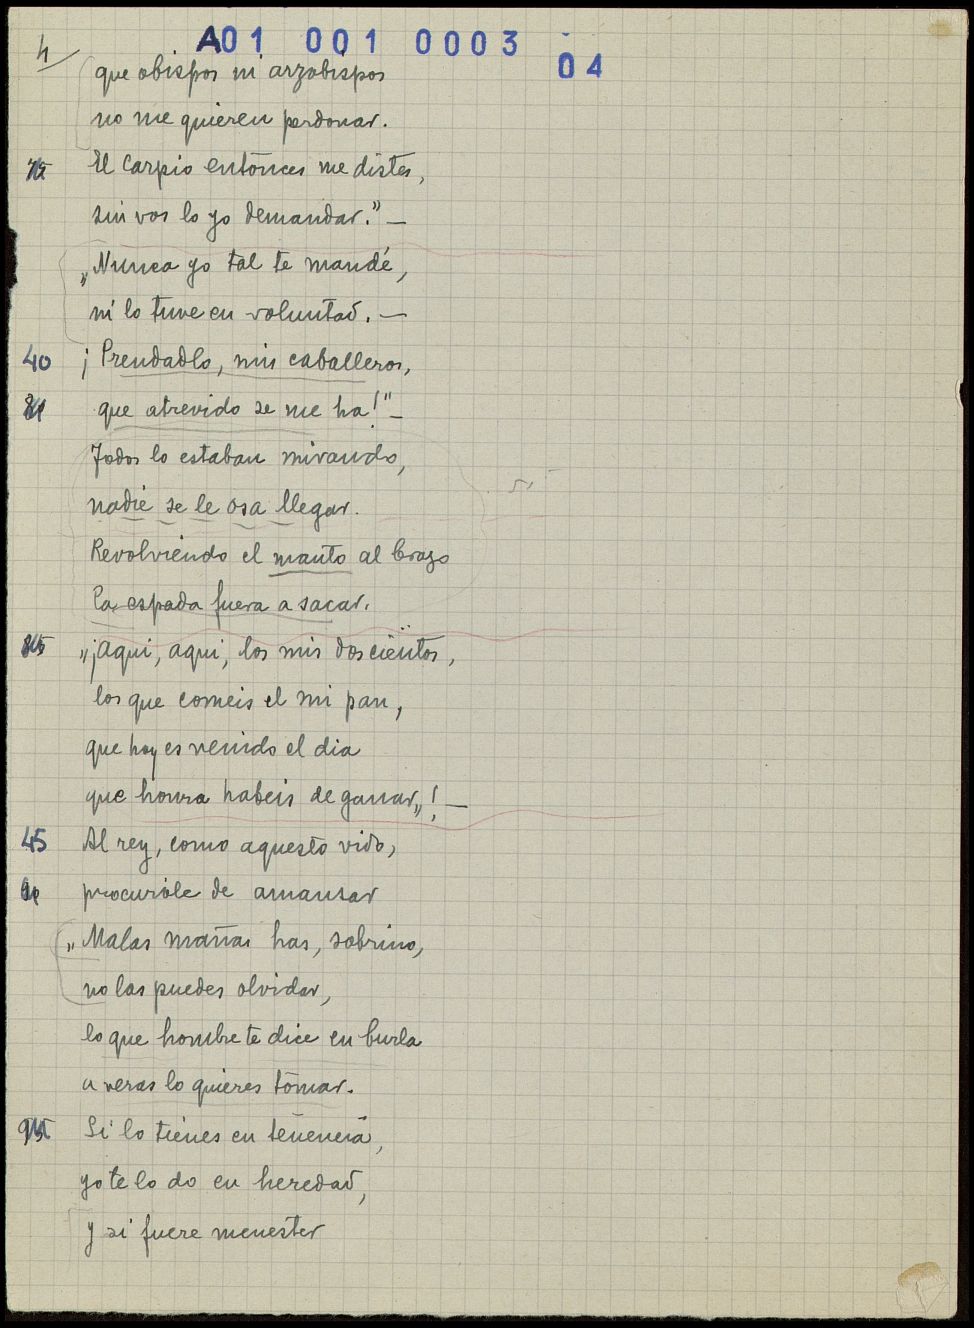 4
A01 001 0003
04
que obispos ni arzobispos
no me quieren perdonar.
75 El Carpio entonces me distes,
sin vos lo yo demandar." —
„Nunca yo tal te mandé,
ni lo tuve en voluntad. —
40 ¡Prendadlo, mis caballeros,
que atrevido se me ha!" —
Todos lo estaban mirando,
nadie se le osa llegar.
Revolviendo el manto al brazo
la espada fuera a sacar.
85 „¡Aqui, aqui, los mis doscientos,
los que comeis el mi pan,
que hoy es venido el dia
que honra habeis de ganar„! —
45 Al rey, como aquesto vido,
procuróle de amansar
„Malas mañas has, sobrino,
no las puedes olvidar,
lo que hombre te dice en burla
a veras lo quieres tomar.
95 Si lo tienes en tenencia,
yo te lo do en heredad,
y si fuere menester